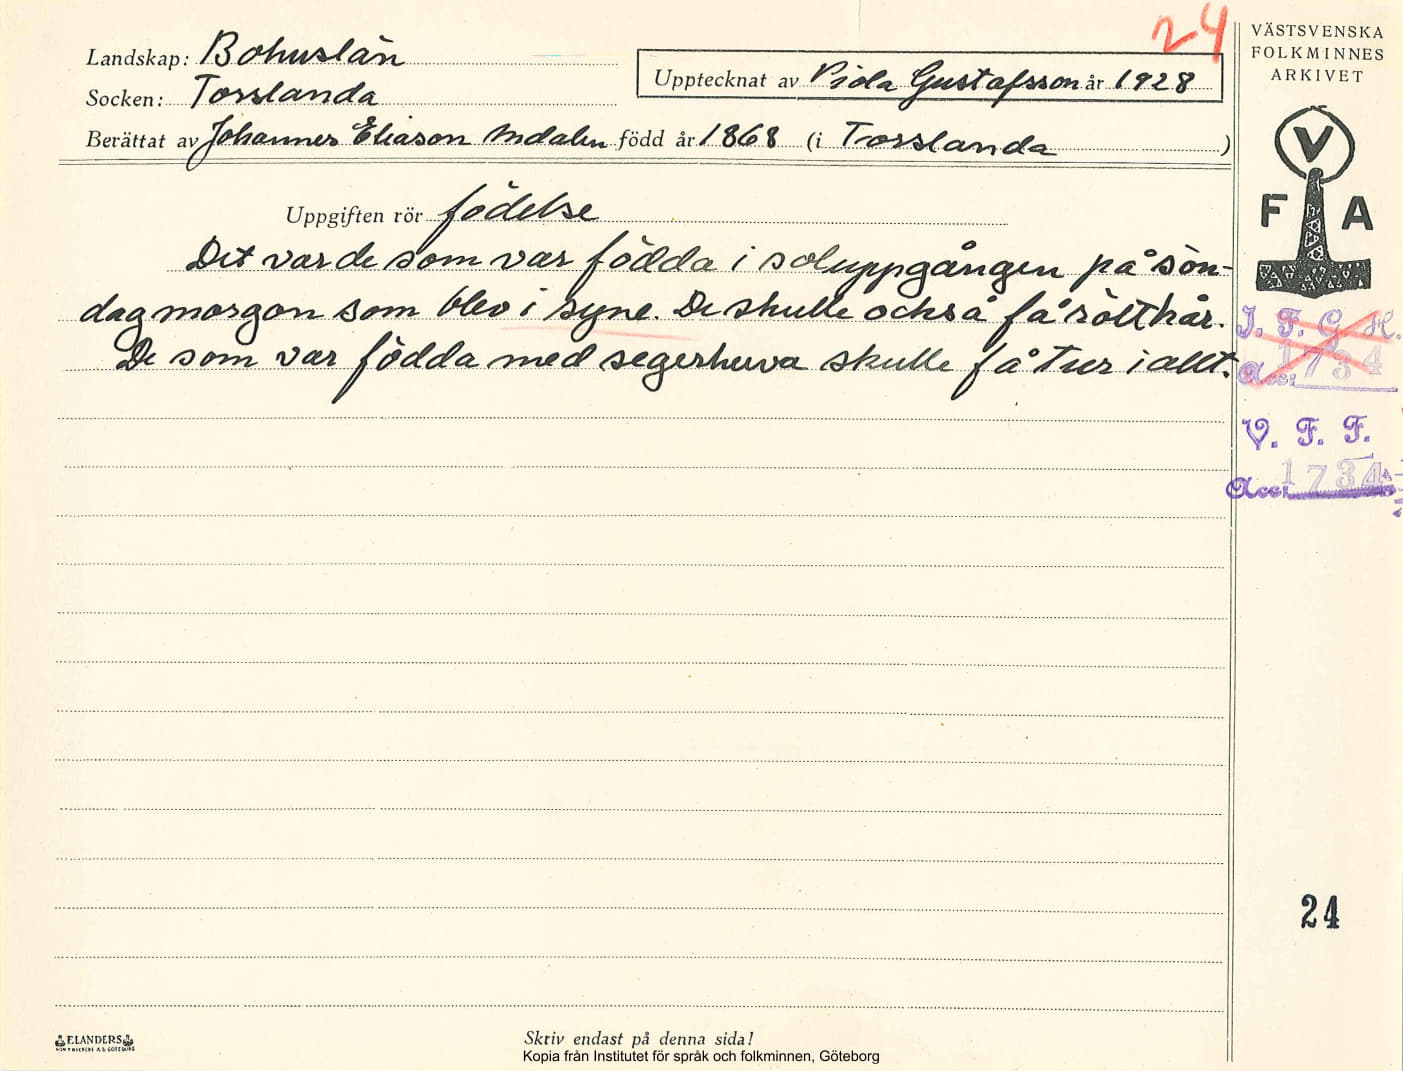 24
VÄSTSVENSKA
FOLKMINNES
ARKIVET
Landskap: Bohuslän
Upptecknat av Viola Gustafsson år 1928
Socken: Torslanda
Berättat av Johannes Eliason Amdalen född år 1868 (i Torslanda )
V
F A
Uppgiften rör födelse
Det var de som var födda i soluppgången på sön-
dag morgon som blev i syne. De skulle också få rött hår.
De som var födda med segerhuva skulle få tur i allt.
I. F. G. H.
Acc: 1734
V. F. F.
Acc: 1734
24
ELANDERS
Skriv endast på denna sida!
Kopia från Institutet för språk och folkminnen, Göteborg